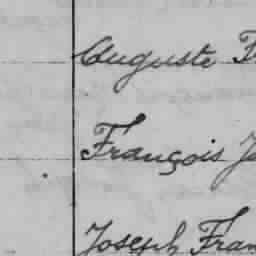 Auguste F
François J
Joseph Fran